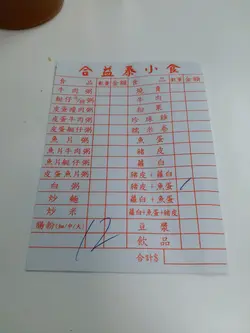 合益泰小食
食品 數量 金額 食品 數量 金額
牛肉粥 燒賣
艇仔粥 牛肉
皮蛋瘦肉粥 粉果
皮蛋牛肉粥 珍珠雞
皮蛋艇仔粥 糯米卷
魚片粥 魚蛋
魚片牛肉粥 豬皮
魚片艇仔粥 蘿白
皮蛋魚片粥 豬皮+蘿白
白粥 豬皮+魚蛋
炒麵 蘿白+魚蛋
炒米 蘿白+魚蛋+豬皮
腸粉(小/中/大) 12 豆漿
飲品
合計$